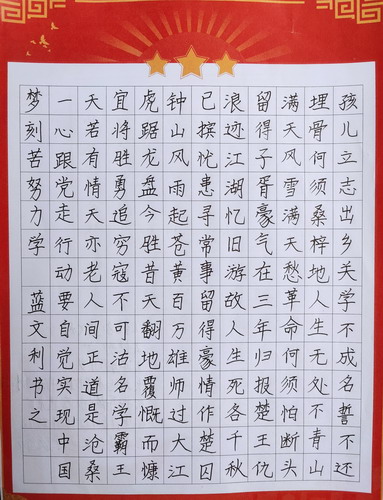 孩儿立志出乡关学不成名誓不还
埋骨何须桑梓地人生无处不青山
满天风雪满天愁革命何须怕断头
留得子胥豪气在三年归报楚王仇
浪迹江湖忆旧游故人生死各千秋
已摈忧患寻常事留得豪情作楚囚
钟山风雨起苍黄百万雄师过大江
虎踞龙盘今胜昔天翻地覆慨而慷
宜将胜勇追穷寇不可沽名学霸王
天若有情天亦老人间正道是沧桑
一心跟党走行动要自觉实现中国
梦刻苦努力学 蓝文利书之